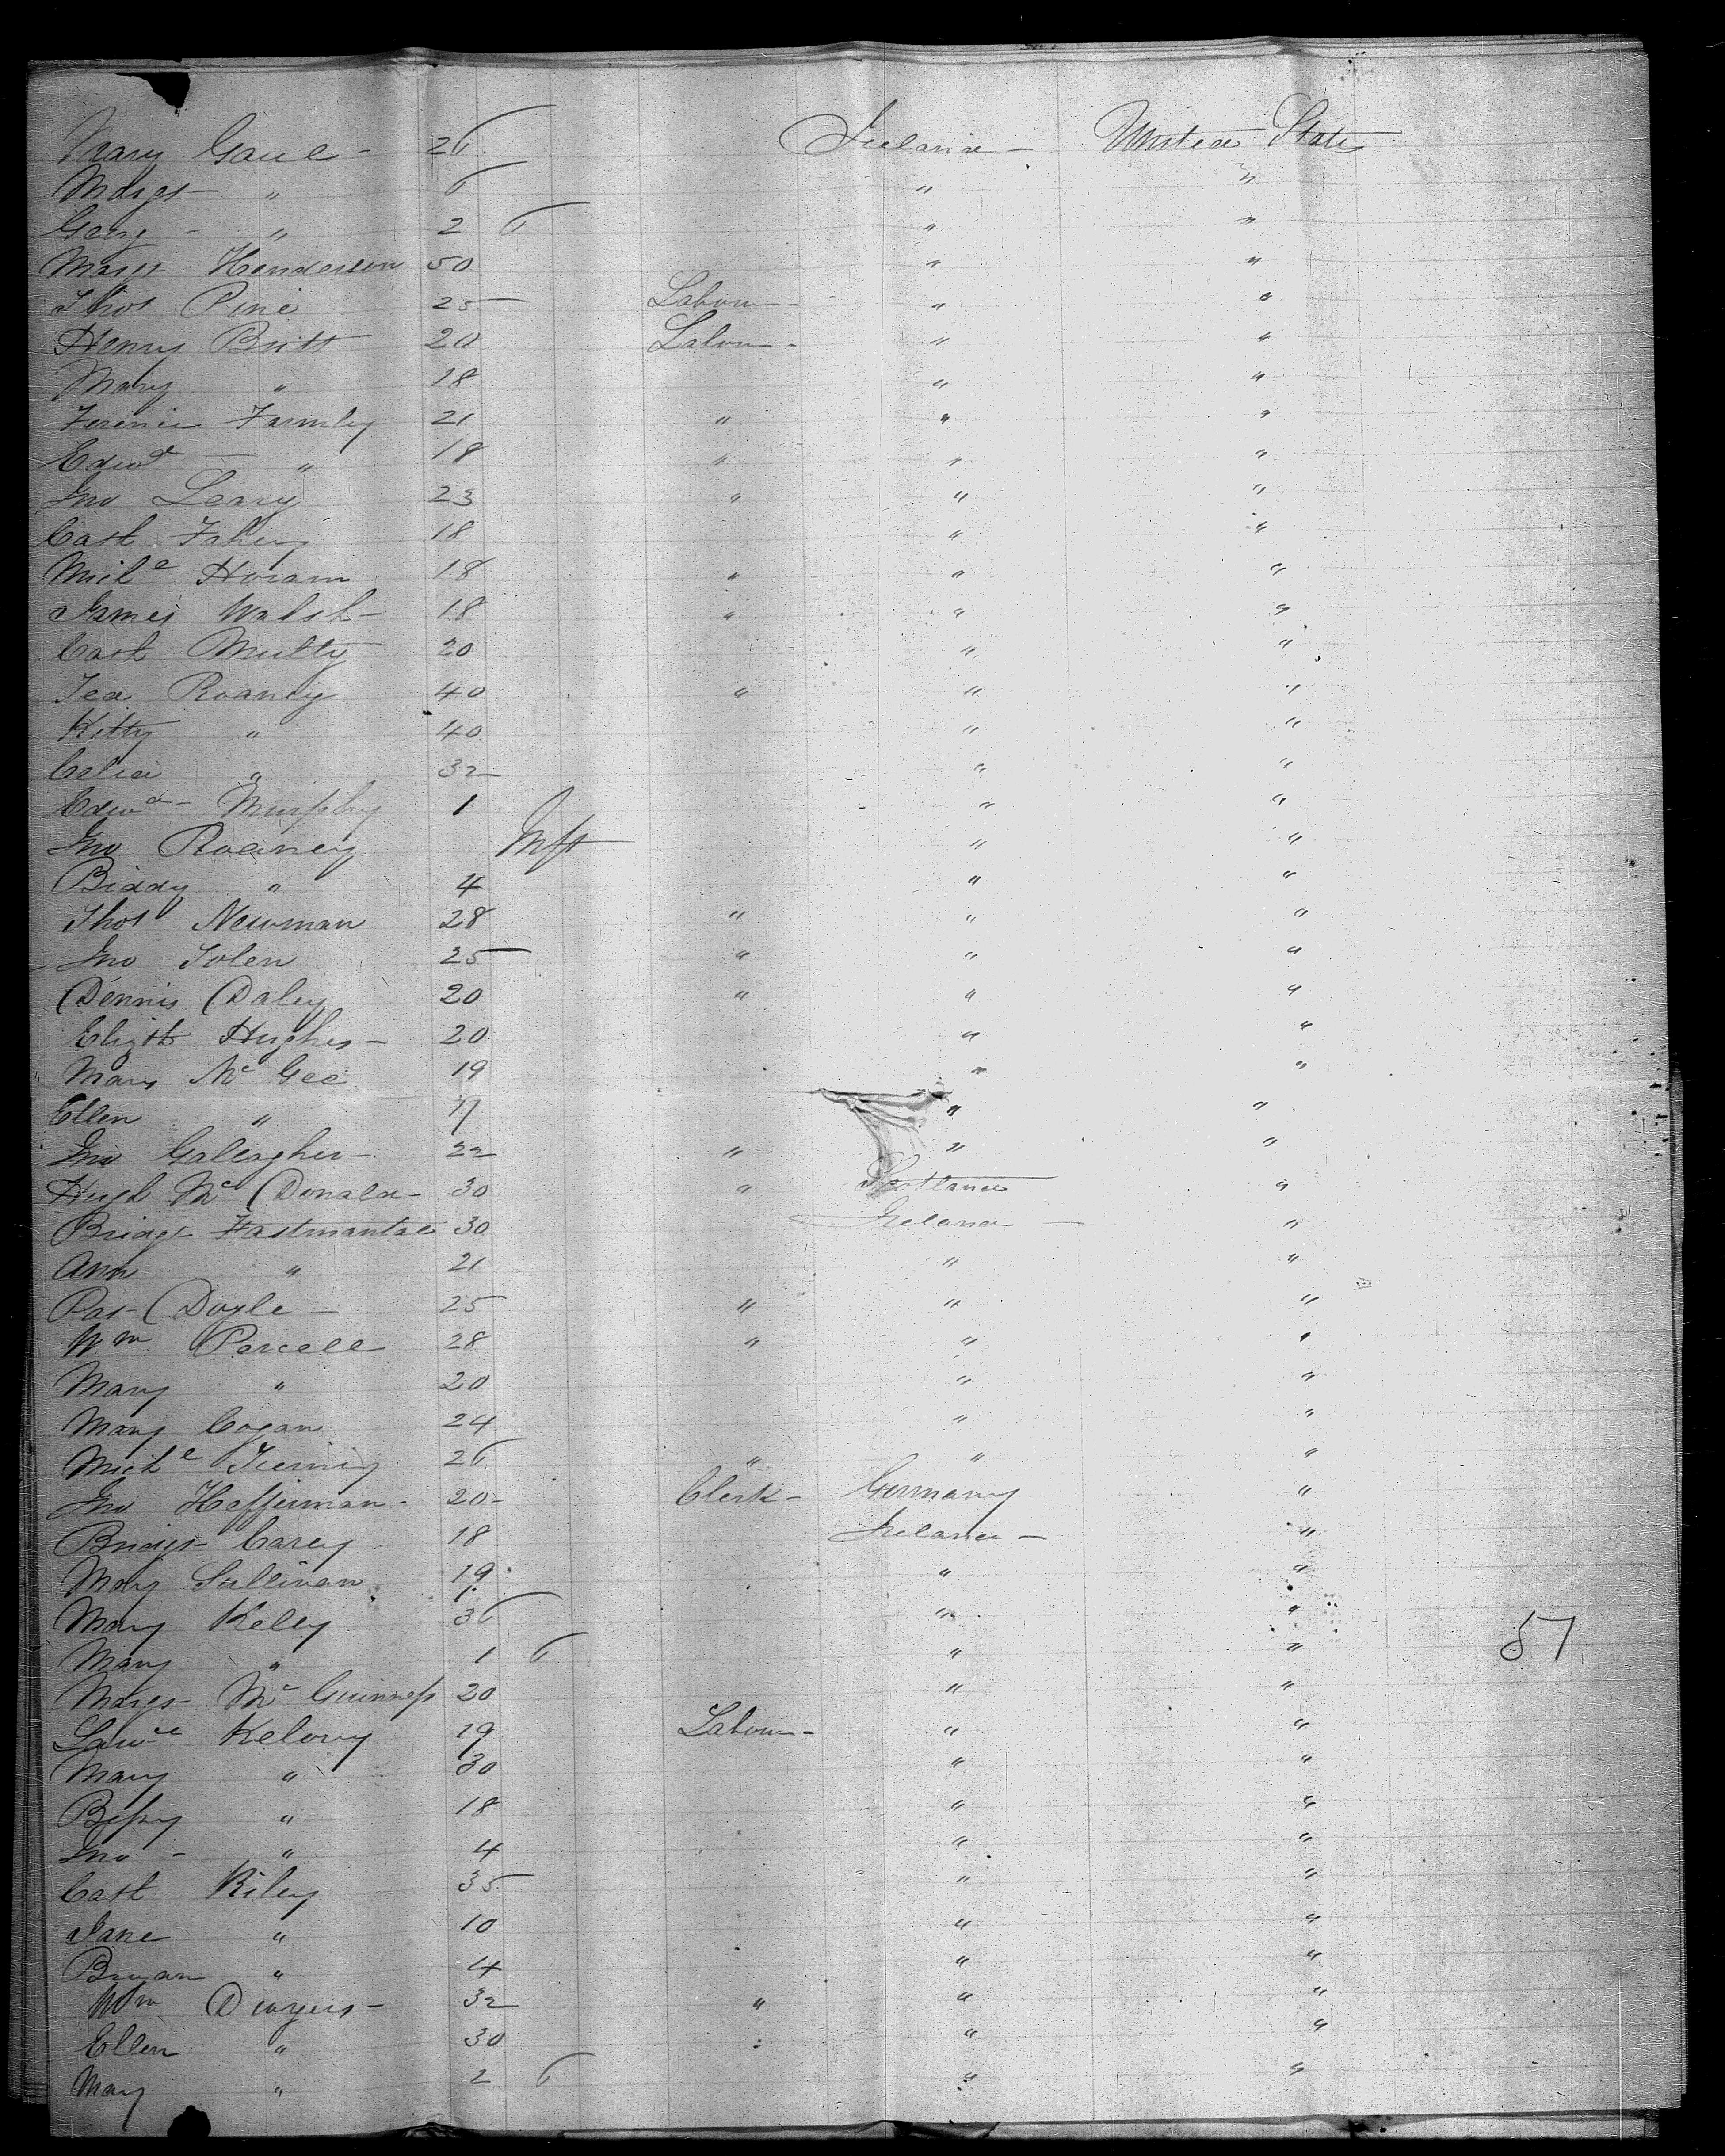 Mary Gaul - 26 Ireland - United States
Margt - " 6 " "
Geo " 2 6 " "
Margt Henderson 50 " "
Thos Pine 25 Labour - " "
Henry Britt 20 Labour - " "
Mary " 18 " "
Farmley 21 " " "
Edwd - " 18 " " "
Jno Leary 23 " " "
Cath Fahey 18 " "
Michl Horam 18 " " "
James Walsh - 18 " " "
Cath Multy 20 " "
Roaney 40 " " "
Kitty " 40 " "
Celia " 32 " "
Edwd - Murphy 1 " "
Jno Roaney Inft " "
Biddy " 4 " "
Thos Newman 28 " " "
Jno Tolen 25 " " "
Dennis Daley 20 " " "
Elizth Hughes - 20 " "
Mary Mc Gee 19 " "
Ellen " 17 " "
Jno Galergher - 22 " " "
Hugh Mc Donald - 30 " Scotland "
Bridgt 30 Ireland - "
Ann " 21 " "
Pat - Doyle - 25 " " "
Wm Porcell 28 " " "
Mary " 20 " "
Mary Cogan 24 " "
Michl 26 " " "
Jno Heffernan - 20 - Clerk - Germany "
Bridgt - Carey 18 Ireland - "
Mary Sullivan 19 " "
Mary Kelly 36 " "
Mary " 1 6 " "
Margt - Mc Guinness 20 " "
Lawce Kelowy 19 Labour - " "
Mary " 30 " "
Bessy " 18 " "
Jno - " 4 " "
Cath Riley 35 " "
Jane " 10 " "
Bryan " 4 " "
Wm Dwyers - 32 " " "
Ellen " 30 " "
Mary " 2 6 " "
51